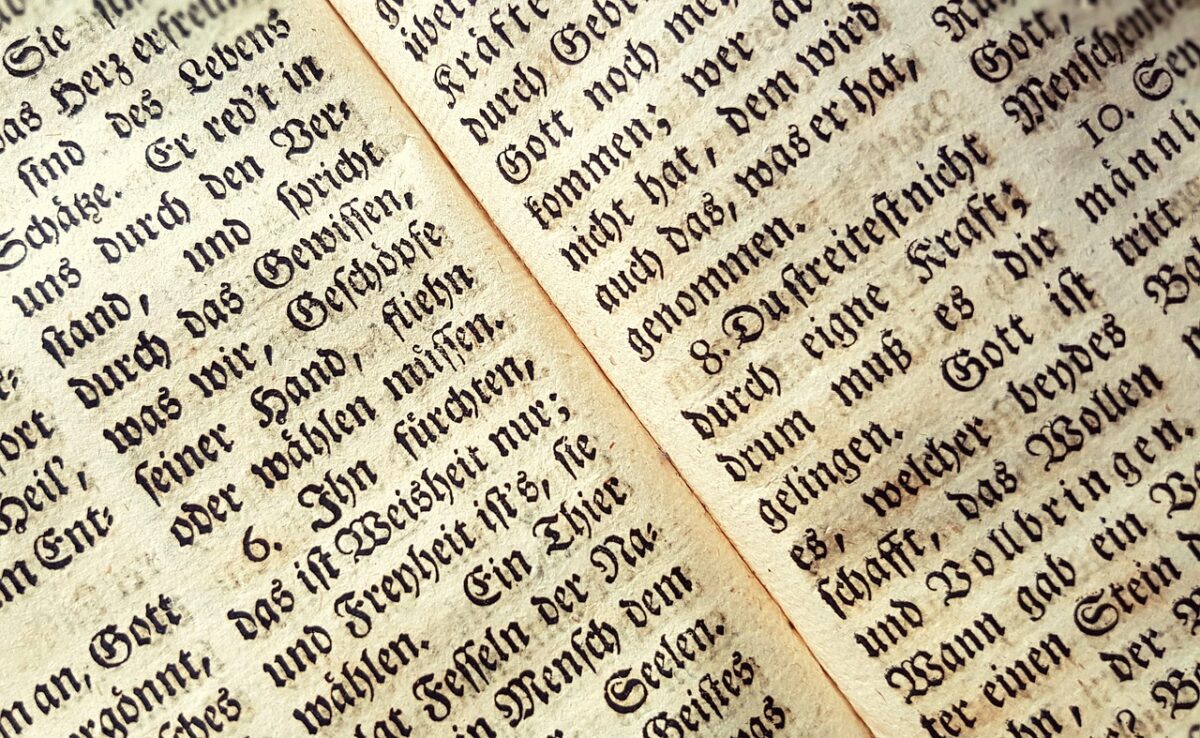 Sie
das Herz erfreun
sind des Lebens
Schåtze. Er red't in
uns durch den Ver⸗
stand, und spricht
durch das Gewissen,
was wir, Geschöpfe
seiner Hand, fliehn
oder wåhlen müssen.
6. Ihn fürchten,
das ist Weisheit nur;
und Freyheit ist's, sie
wåhlen. Ein Thier
Fesseln der Na⸗
Mensch dem
Seelen.
Geistes
Heil,
Ent⸗
an, Gott
Kråfte
durch
Gott noch
kommen; wer
nicht hat, dem wird
auch das, was er hat,
genommen.
8. Du streitest nicht
durch eigne Kraft;
drum muß es dir
gelingen. Gott ist
es, welcher beydes
schafft, das Wollen
und Vollbringen.
Wann gab ein
ter einen Stein
der
Gott,
10.
tritt